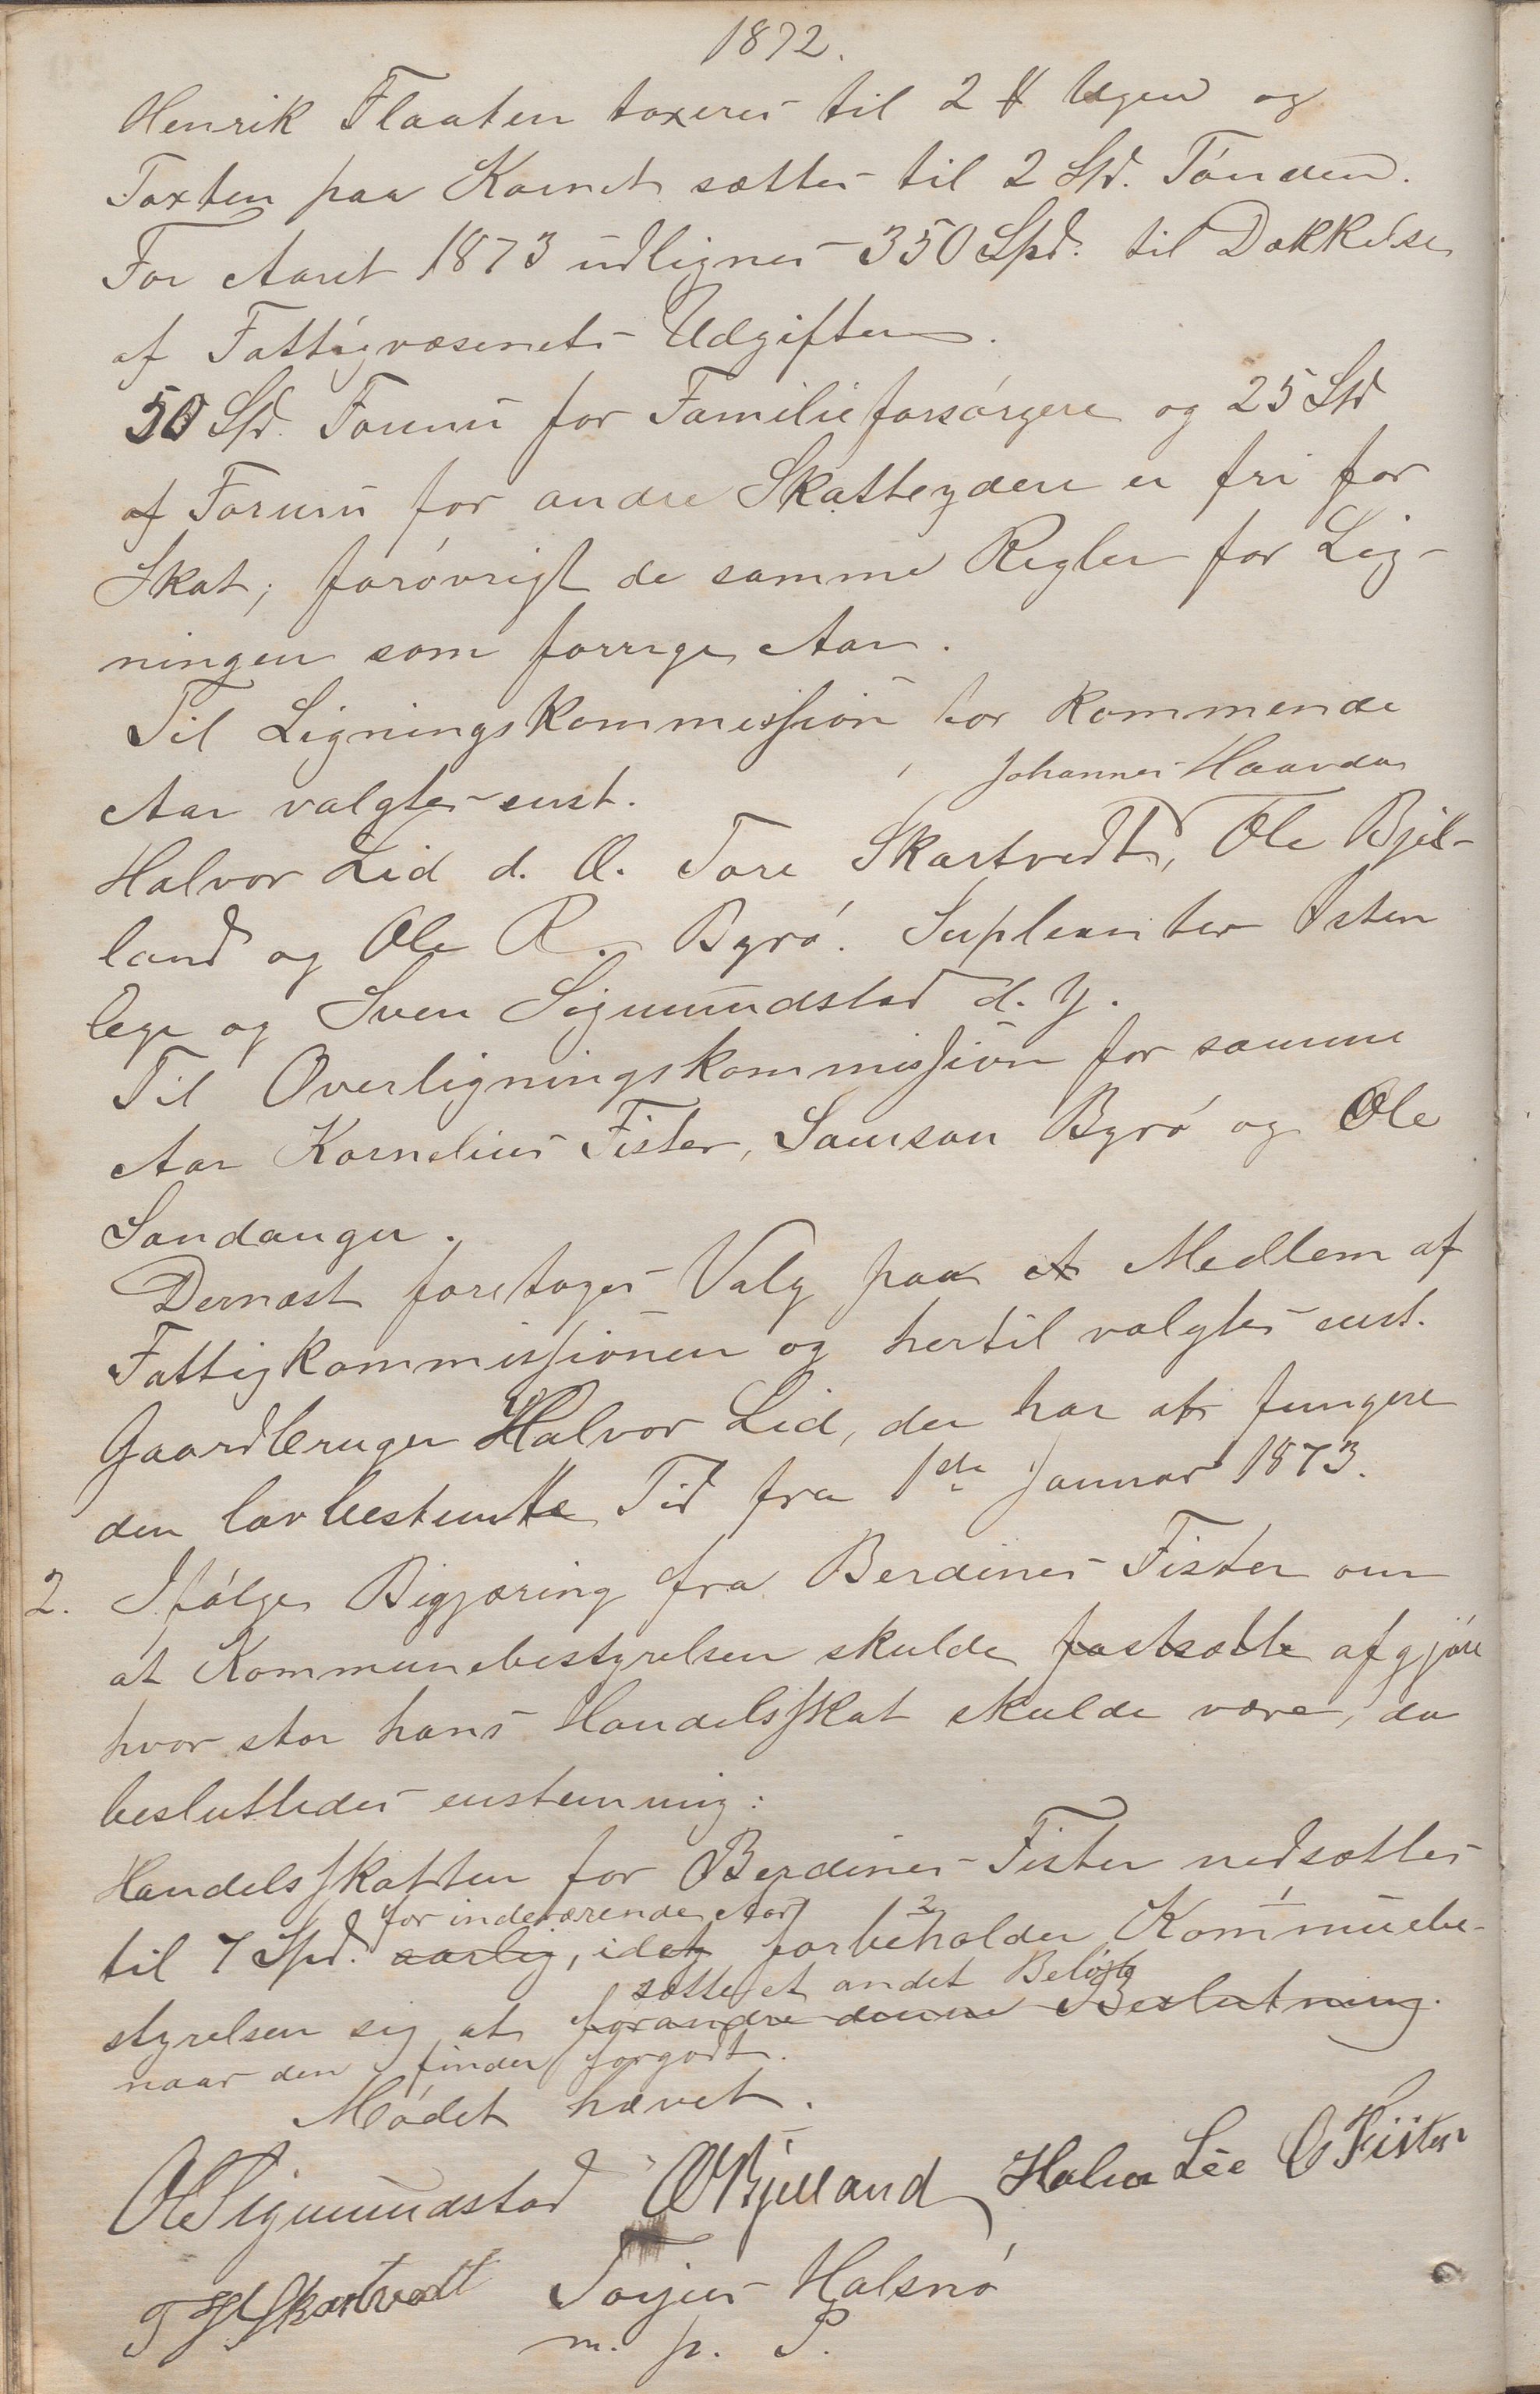 1872.
Henrik Flaaten taxeres til 2 ₰ Ugen og
Taxten paa Kornet sættes til 2 Spd. Tønden.
For Aaret 1873 udlignes 350 Spd. til Dækkelse
af Fattigvæsenets Udgifter.
50 Spd. Formu for Familieforsørgere og 25 Spd
af Formu for andre Skatteydere er fri for
Skat; forøvrigt de samme Regler for Lig-
ningen som forrige Aar.
Til Ligningskommission for kommende
Aar valgtes enst. Johannes Haavdas
Halvor Lid d. Æ. Tore Skartvedt, Ole Bjel-
land og Ole R. Byrø. Suplenter Østen
Lege og Sven Sigmundstad d. Y.
Til Overligningskommission for samme
Aar Kornelius Fister, Samson Byrø og Ole
Sandanger.
Dernæst foretoges Valg paa et Medlem af
Fattigkommissionen og hertil valgtes enst.
Gaardbruger Halvor Lid, der har at fungere
den lovbestemte Tid fra 1de Januar 1873.
2. Ifølge Begjæring fra Berdines Fister om
at Kommunebestyrelsen skulde fastsætte afgjøre
hvor stor hans Handelsskat skulde være, da
besluttedes enstemmig:
Handelsskatten for Berdines Fister nedsættes
for indeværende Aar
til 7 Spd. aarlig, idet forbeholder Kommunebe-
sætte et andet Beløb
styrelsen sig at forandre denne Beslutning.
naar den finder forgodt.
Mødet hævet.
O Sigmundstad O Bjelland Halvor Lie C Fister
T H Skartvedt Torjus Halsnø
m. p. P.